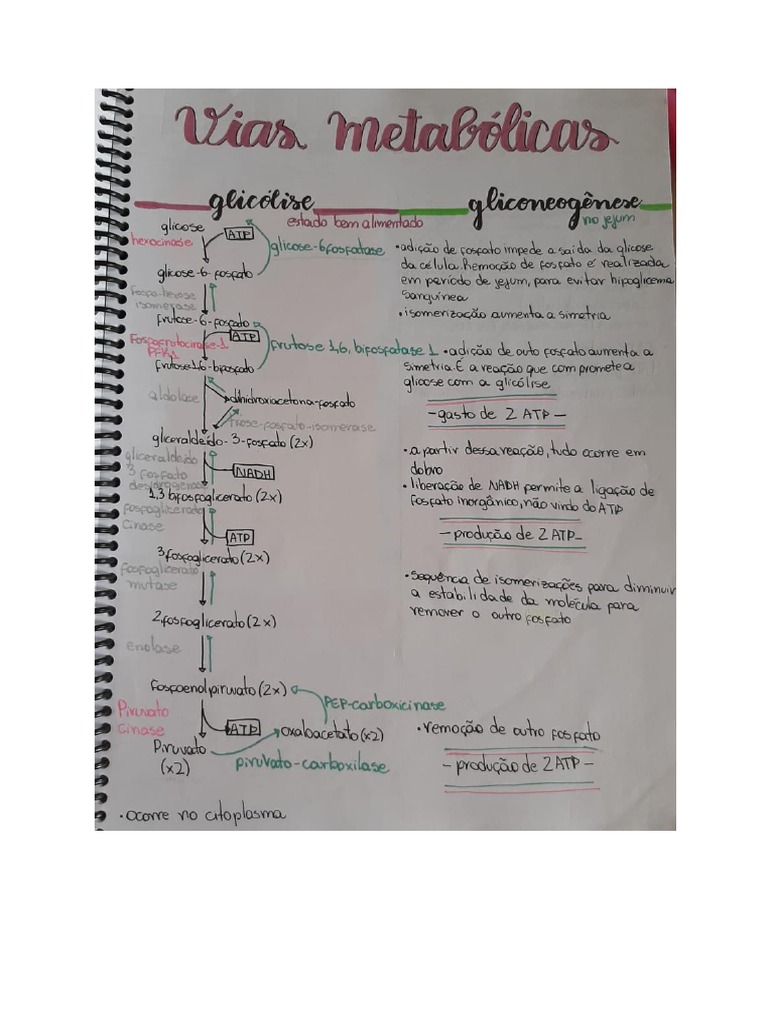 Vias metabólicas
glicólise
estado bem alimentado
gliconeogênese
no jejum
glicose
ATP
hexocinase
glicose-6fosfatase
glicose-6-fosfato
fosfo-hexose
isomerase
frutose-6-fosfato
ATP
Fosfofrutocinase-1
PFK1
frutose 1,6, bifosfatase 1
frutose1,6-bifosfato
aldolase
dihidroxiacetona-fosfato
triose-fosfato-isomerase
gliceraldeído-3-fosfato (2x)
gliceraldeído
3 fosfato
desidrogenase
NADH
1,3 bifosfoglicerato (2x)
fosfoglicerato
cinase
ATP
3fosfoglicerato (2x)
fosfoglicerato
mutase
2,fosfoglicerato (2x)
enolase
fosfoenolpiruvato (2x)
PEP-carboxicinase
Piruvato
cinase
ATP
oxaloacetato (x2)
Piruvato
(x2)
piruvato-carboxilase
•ocorre no citoplasma
•adição de fosfato impede a saída da glicose
da célula. Remoção de fosfato é realizada
em período de jejum, para evitar hipoglicemia
sanguínea
•isomerização aumenta a simetria
•adição de outo fosfato aumenta a
simetria. É a reação que compromete a
glicose com a glicólise
-gasto de 2 ATP-
•a partir dessa reação, tudo ocorre em
dobro
•liberação de NADH permite a ligação de
fosfato inorgânico, não vindo do ATP
-produção de 2 ATP-
•sequência de isomerizações para diminuir
a estabilidade da molécula para
remover o outro fosfato
•remoção de outro fosfato
-produção de 2 ATP-